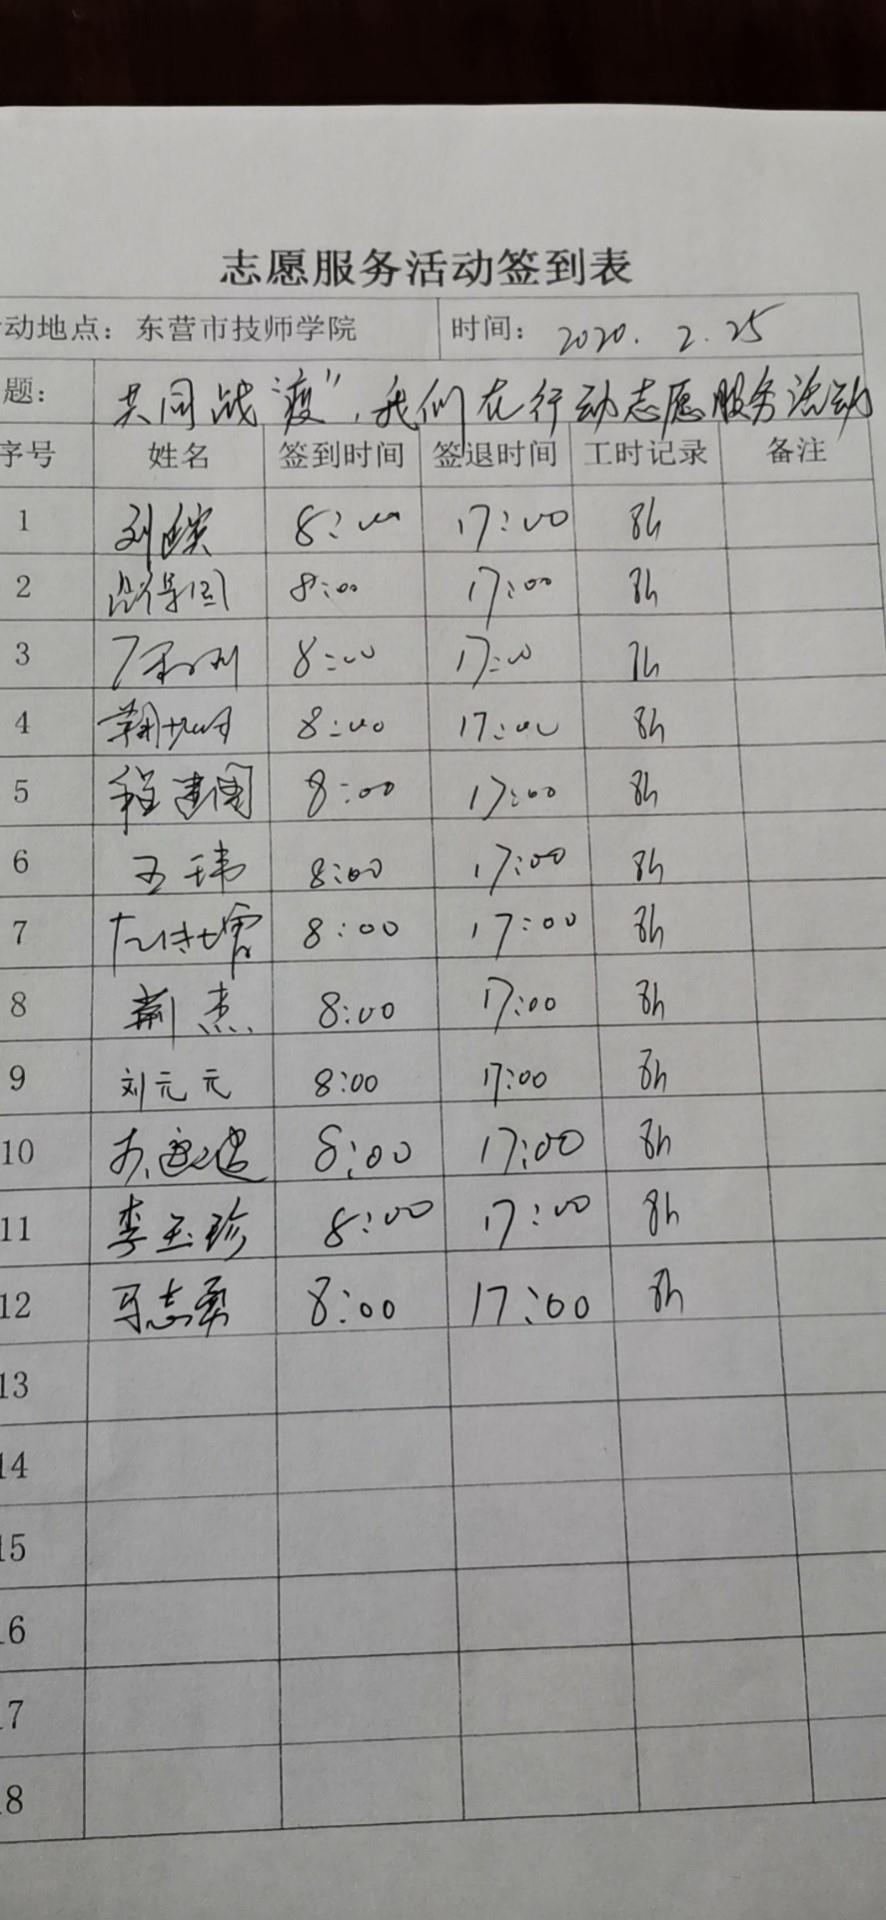 志愿服务活动签到表
动地点：东营市技师学院 时间：2020.2.25
题： 共同战“疫”，我们在行动志愿服务活动
序号 姓名 签到时间 签退时间 工时记录 备注
1 刘 8:00 17:00 8h
2 8:00 17:00 8h
3 8:00 17:00
4 8:00 17:00 8h
5 程建国 8:00 17:00 8h
6 王玮 8:00 17:00 8h
7 8:00 17:00 8h
8 荆杰 8:00 17:00 8h
9 刘元元 8:00 17:00 8h
10 8:00 17:00 8h
11 李玉珍 8:00 17:00 8h
12 马志勇 8:00 17:00 8h
13
14
15
16
17
18